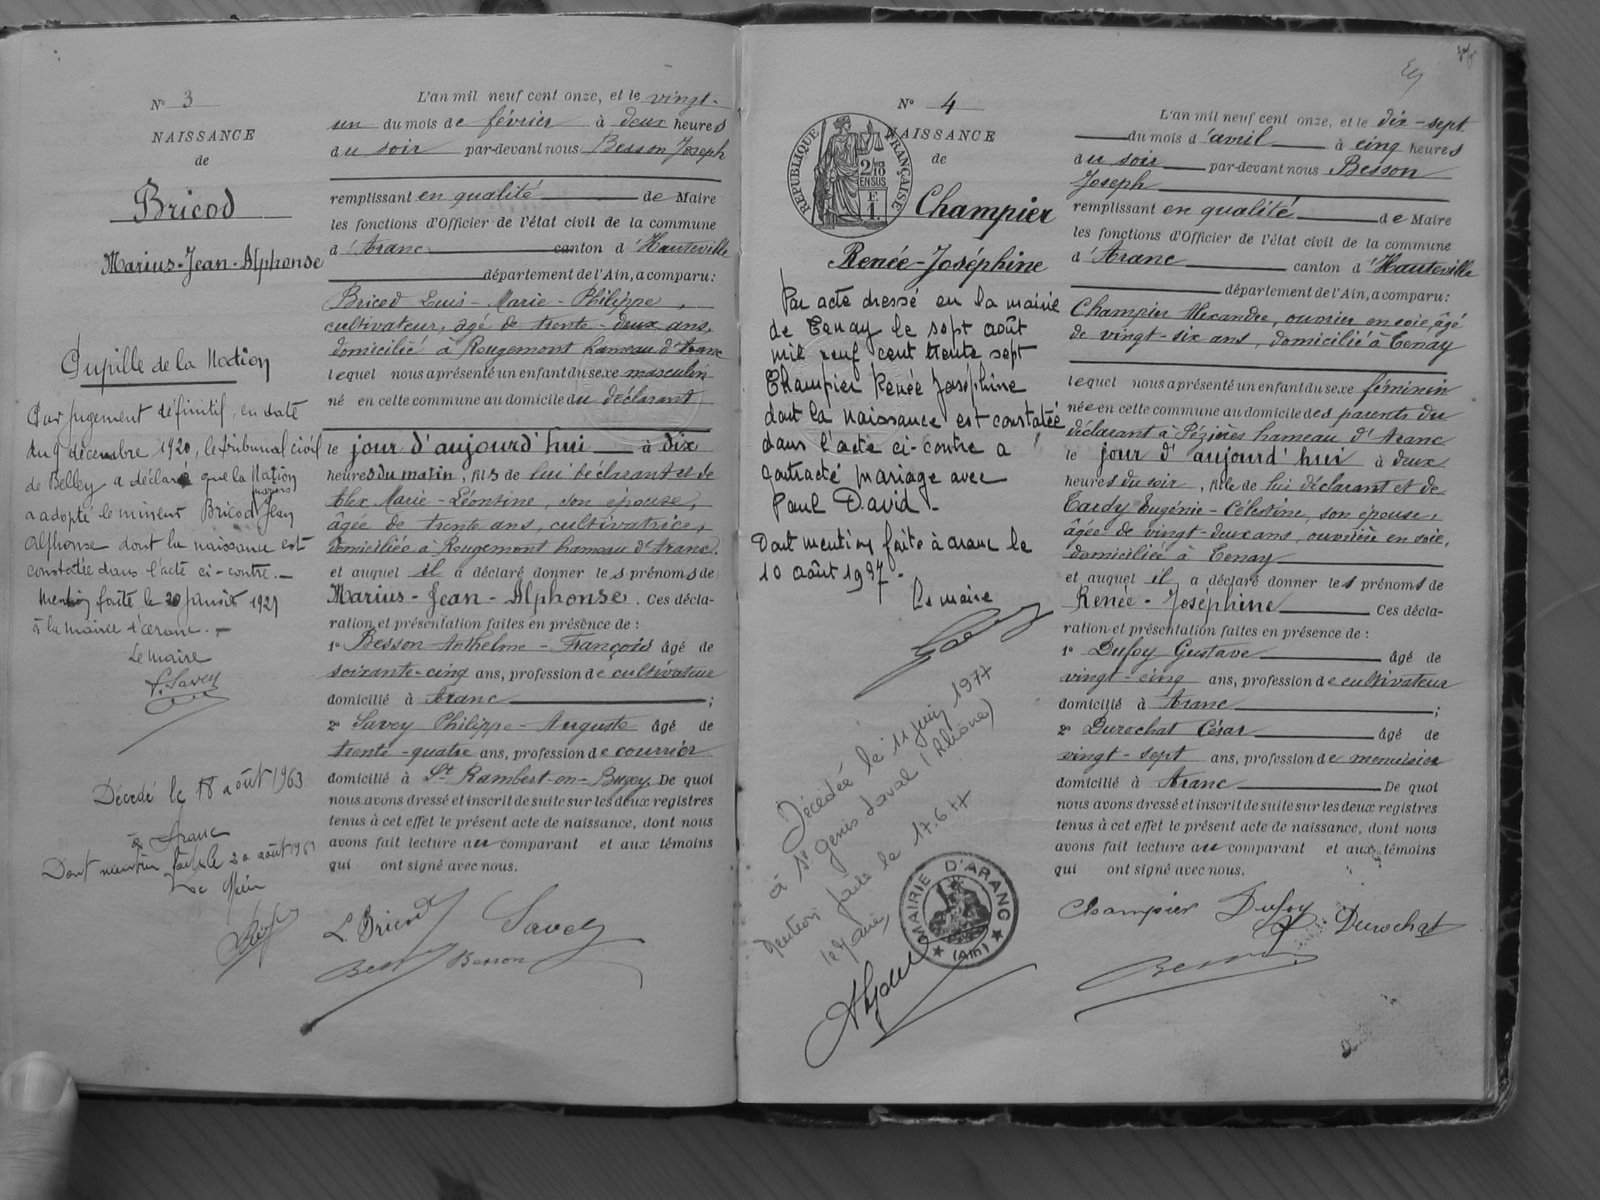 N° 3
NAISSANCE
de
Bricod
Marius-Jean-Alphonse
Pupille de la Nation
Par jugement définitif, en date
du 9 décembre 1920, le tribunal civil
de Belley a déclaré que la Nation
a adopté le mineur Bricod Marius Jean
Alphonse dont la naissance est
constatée dans l'acte ci-contre.
Mention faite le 20 janvier 1921
à la mairie d'Aranc.
Le maire
Savey
Décédé le 18 août 1963
à Aranc
Dont mention faite le 20 août 1963
Le
L'an mil neuf cent onze, et le vingt-
un du mois de février à deux heures
du soir par-devant nous Besson Joseph
remplissant en qualité de Maire
les fonctions d'Officier de l'état civil de la commune
d'Aranc canton d'Hauteville
département de l'Ain, a comparu:
Bricod Louis-Marie-Philippe,
cultivateur, âgé de trente-deux ans,
domicilié à Rougemont hameau d'Aranc
lequel nous a présenté un enfant du sexe masculin
né en cette commune au domicile du déclarant
le jour d'aujourd'hui à dix
heures du matin, fils de lui déclarant et de
Marie-Léontine, son épouse,
âgée de trente ans, cultivatrice,
domiciliée à Rougemont hameau d'Aranc.
et auquel il a déclaré donner les prénoms de
Marius-Jean-Alphonse. Ces décla-
ration et présentation faites en présence de:
1° Besson Anthelme-François âgé de
soixante-cinq ans, profession de cultivateur
domicilié à Aranc;
2° Savey Philippe-Auguste âgé de
trente-quatre ans, profession de courrier
domicilié à St Rambert-en-Bugey. De quoi
nous avons dressé et inscrit de suite sur les deux registres
tenus à cet effet le présent acte de naissance, dont nous
avons fait lecture au comparant et aux témoins
qui ont signé avec nous.
L Bricod Savey
Besson
N° 4
NAISSANCE
de
RÉPUBLIQUE FRANÇAISE
2/10
EN SUS
E
1
Champier
Renée-Joséphine
Par acte dressé en la mairie
de Tenay le sept août
mil neuf cent trente sept
Champier Renée Joséphine
dont la naissance est constatée
dans l'acte ci-contre a
contracté mariage avec
Paul David.
Dont mention faite à Aranc le
10 août 1937.
Le maire
Décédée le 11 juin 1977
à St Genis Laval (Rhône)
Mention faite le 17.6.77
le Maire,
MAIRIE D'ARANC
(Ain)
L'an mil neuf cent onze, et le dix-sept
du mois d'avril à cinq heures
du soir par-devant nous Besson
Joseph
remplissant en qualité de Maire
les fonctions d'Officier de l'état civil de la commune
d'Aranc canton d'Hauteville
département de l'Ain, a comparu:
Champier Alexandre, ouvrier en soie, âgé
de vingt-six ans, domicilié à Tenay
lequel nous a présenté un enfant du sexe féminin
née en cette commune au domicile des parents du
déclarant à Pézières hameau d'Aranc
le jour d'aujourd'hui à deux
heures du soir, fille de lui déclarant et de
Tardy Eugénie-Célestine, son épouse,
âgée de vingt-deux ans, ouvrière en soie,
domiciliée à Tenay
et auquel il a déclaré donner les prénoms de
Renée-Joséphine Ces décla-
ration et présentation faites en présence de:
1° Dufoy Gustave âgé de
vingt-cinq ans, profession de cultivateur
domicilié à Aranc;
2° Durochat César âgé de
vingt-sept ans, profession de menuisier
domicilié à Aranc De quoi
nous avons dressé et inscrit de suite sur les deux registres
tenus à cet effet le présent acte de naissance, dont nous
avons fait lecture au comparant et aux témoins
qui ont signé avec nous.
Champier Dufoy Durochat
Besson